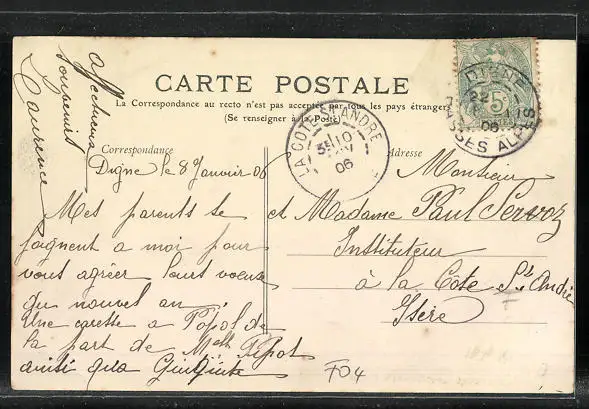 CARTE POSTALE
La Correspondance au recto n'est pas acceptée par tous les pays étrangers
(Se renseigner à la Poste)
Correspondance
Adresse
Digne le 8 Janvier 06
Mes parents se
joignent a moi pour
vous agréer leurs voeux
du nouvel an.
Une caresse a Popol de
la part de Melle Pépot
ainsi que
Affectueux
souvenirs
Laurence
Monsieur
et Madame Paul Servoz
Instituteur
à la Côte St André
Isère
F04
LA COTE ST ANDRE
10
06
DIGNE
BASSES ALPES
06
5